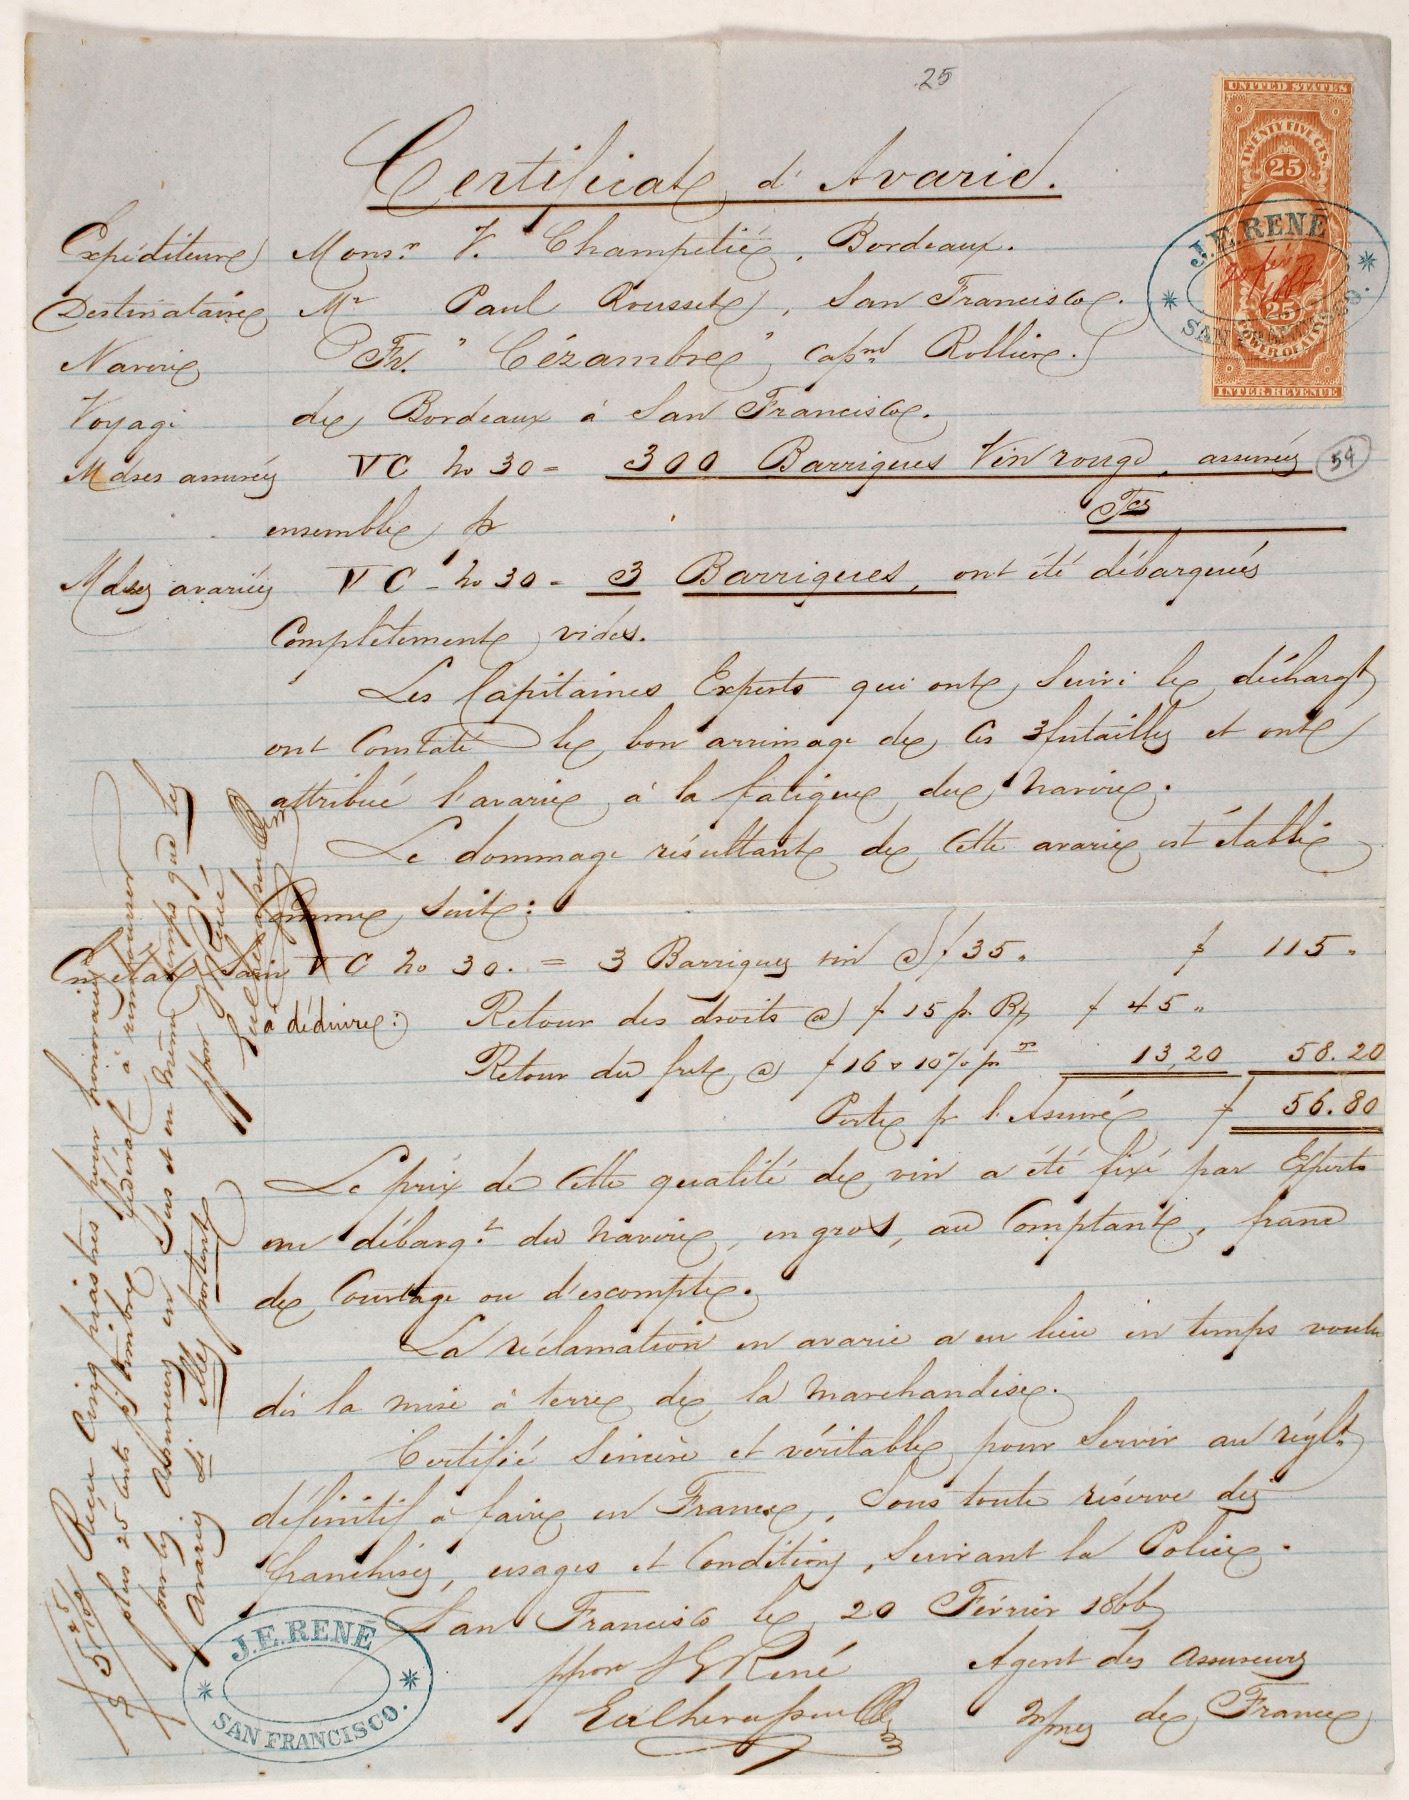 25
Certificat d'Avarie.
UNITED STATES
TWENTY FIVE CTS.
25
25
INTER. REVENUE
J. E. RENÉ
SAN FRANCISCO.
20 fév
1866
Expéditeur Monsr. V. Champetié, Bordeaux.
Destinataire Mr Paul Rousset, San Francisco.
Navire Fr. "Cézambre" capne Rollier.
Voyage de Bordeaux à San Francisco.
Mdses assurées VC no 30 = 300 Barriques Vin rouge, assurées
54
ensemble pr
Mdses avariées VC - no 30 = 3 Barriques, ont été débarqués
Complètement vides.
Les Capitaines Experts qui ont suivi le décharget
ont Constaté le bon arrimage de ces 3 futailles et ont
attribué l'avarie à la fatigue du navire.
Le dommage résultant de cette avarie est établi
comme suit:
En état sain VC no 30. = 3 Barriques vin @ $ 35 " $ 115 "
à déduire: Retour des droits @ $ 15 pr Bq $ 45 "
Retour du fret @ $ 16 & 10% pr 13,20 58.20
Perte pr l'Assuré $ 56.80
Le prix de cette qualité de vin a été fixé par Experts
au débarqt. du navire, en gros, au Comptant, franc
de Courtage ou d'escompte.
La réclamation en avarie a eu lieu en temps voulu
dès la mise à terre de la marchandise.
Certifié Sincère et véritable pour servir au règlt.
définitif à faire en France, sous toute réserve des
franchises, usages et Conditions, suivant la Police.
San Francisco le 20 Février 1866
ppon J E René Agent des Assureurs
de France
J. E. RENÉ
SAN FRANCISCO.
$ 5 25/100 Reçu Cinq piastres pour honoraires
plus 25 cents pr timbre fédéral à rembourser
par les Assureurs en sus et en même temps que les
avaries si elles portent
ppon J E René